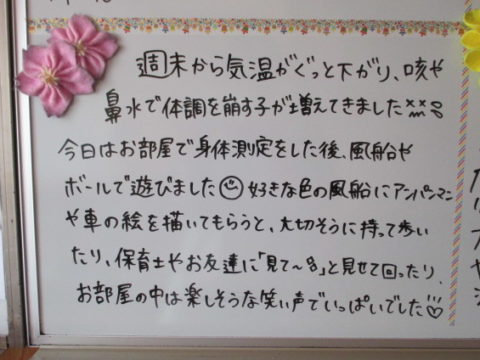 週末から気温がぐっと下がり、咳や
鼻水で体調を崩す子が増えてきました
今日はお部屋で身体測定をした後、風船や
ボールで遊びました 好きな色の風船にアンパンマン
や車の絵を描いてもらうと、大切そうに持って歩い
たり、保育士やお友達に「見て〜」と見せて回ったり、
お部屋の中は楽しそうな笑い声でいっぱいでした